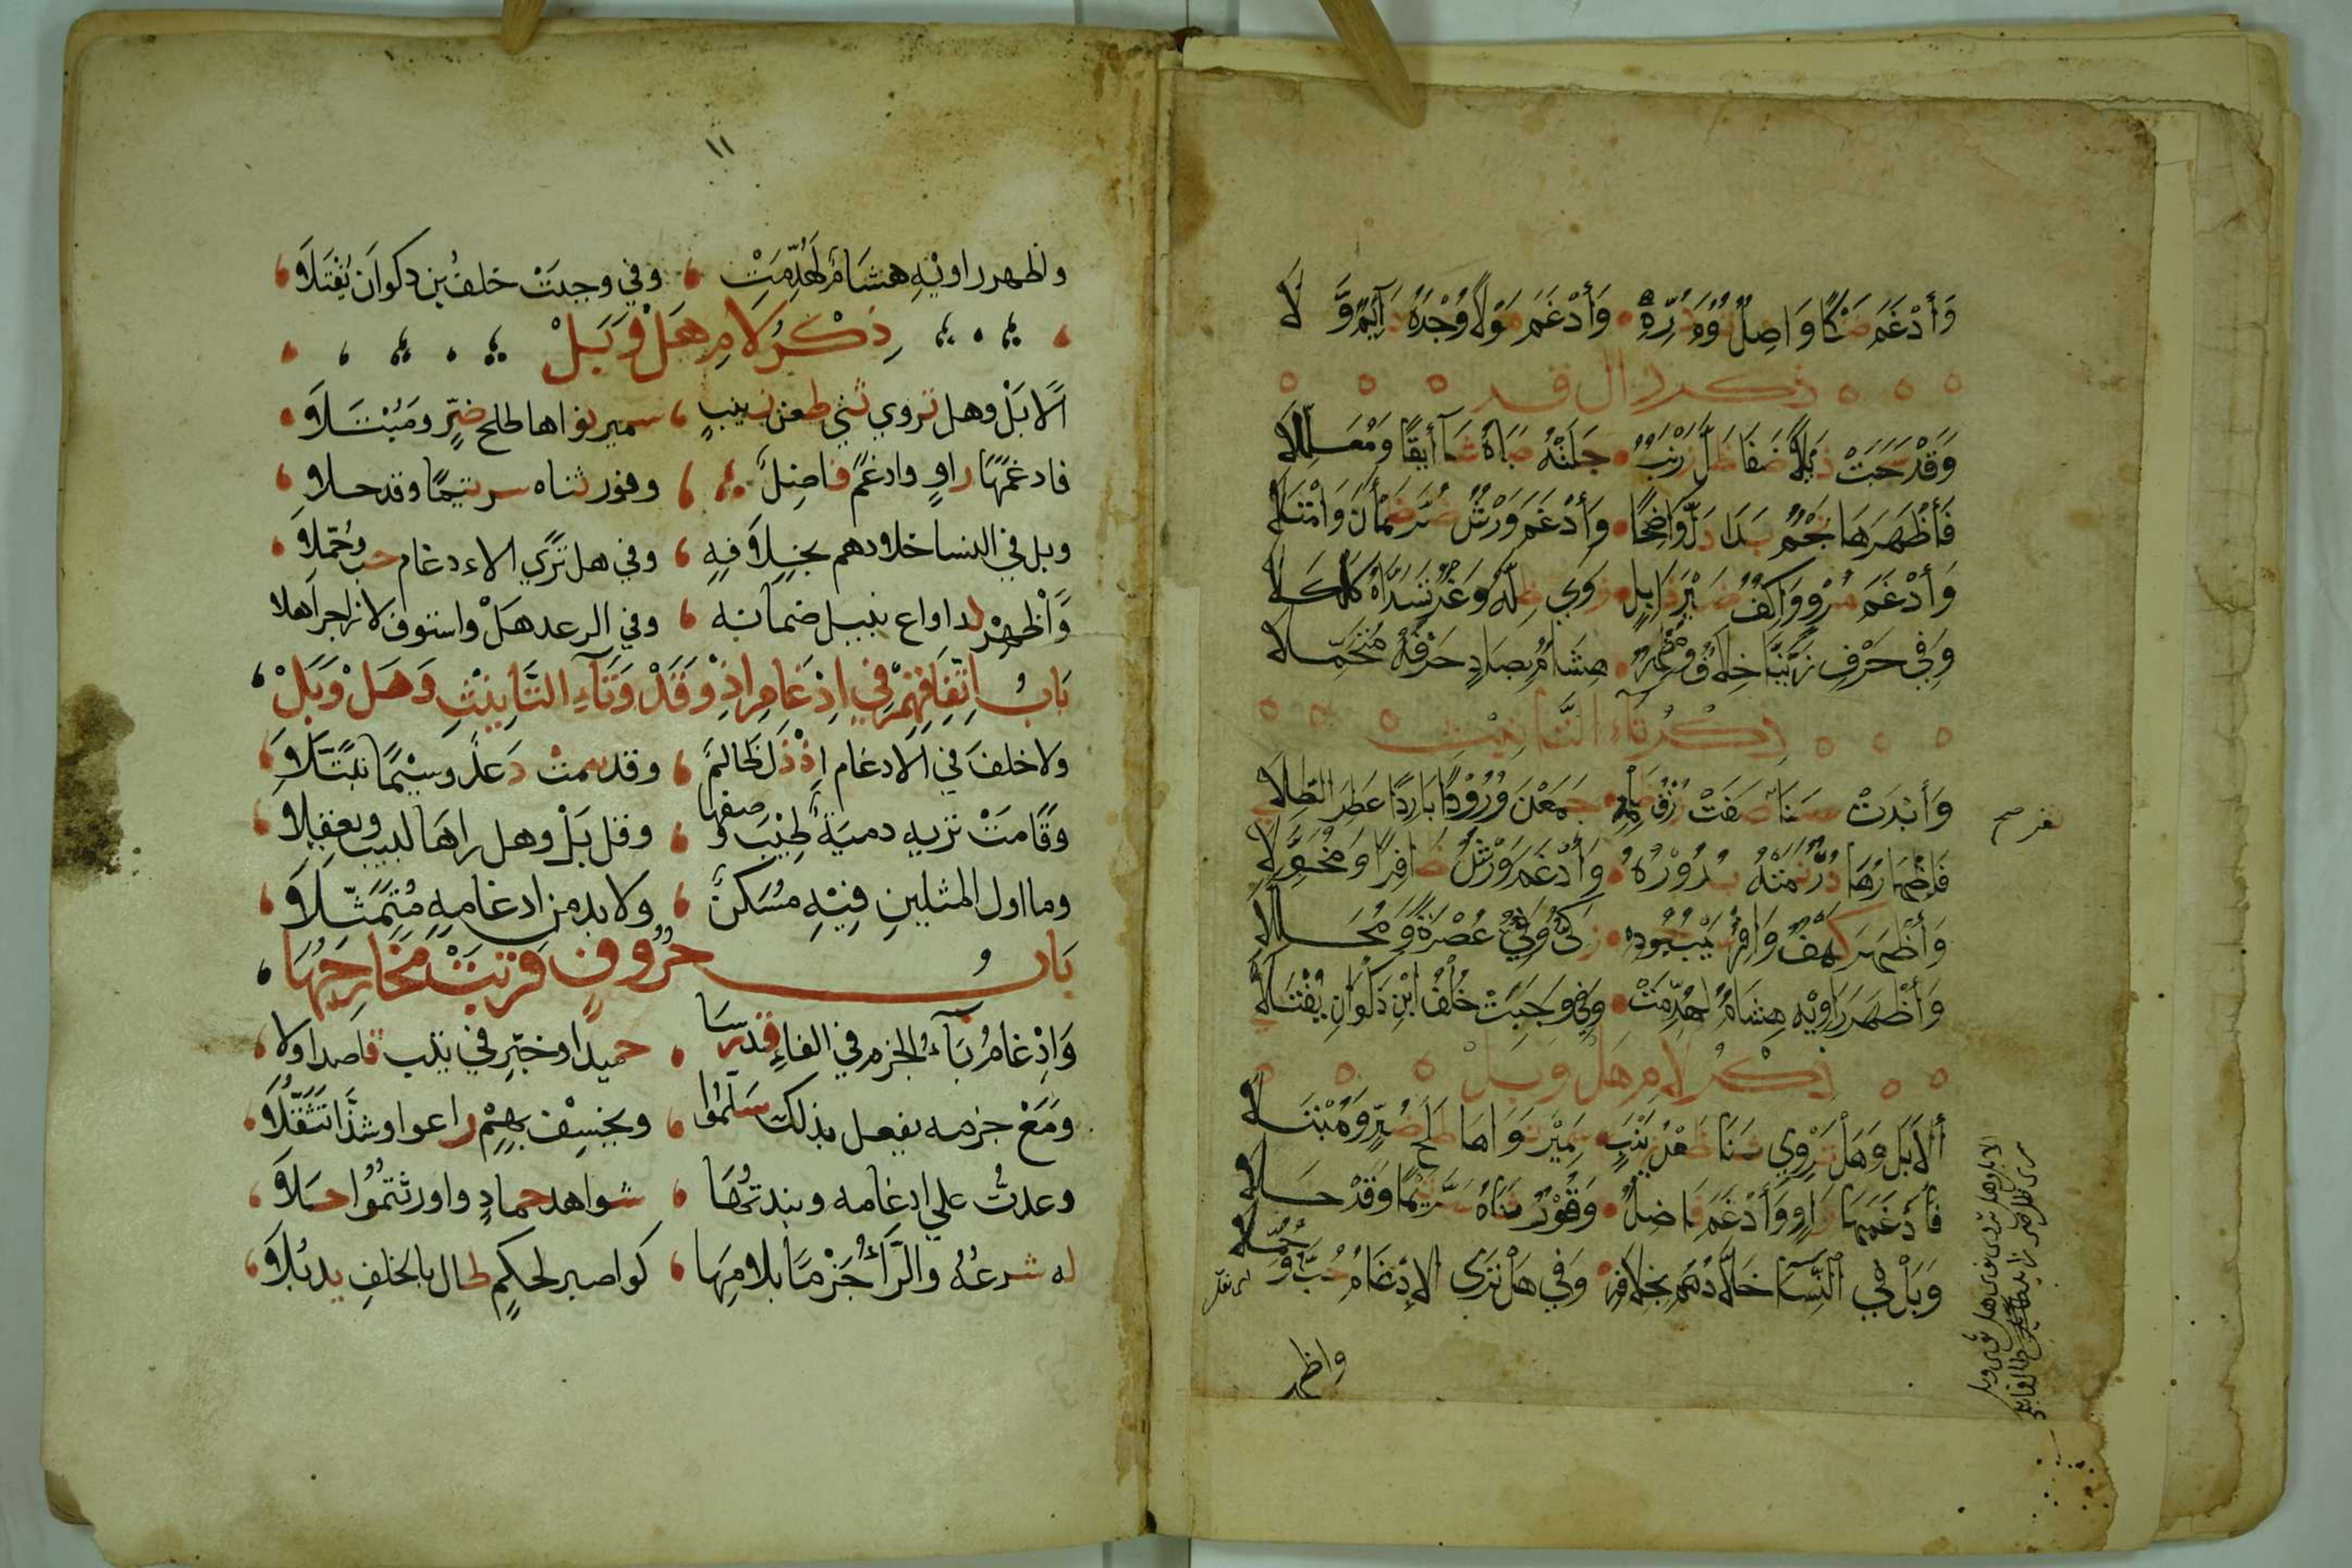 وَأَدْغَمَ ضَنْكًا وَاصِلٌ تُوُمَ دُرِّهِ • وَأَدْغَمَ مَوْلًا وُجْدُهُ دَآئِمٌ وَّلَا
ذكر دال قد
وَقَدْ سَحَبَتْ ذَيْلًا ضَفَا ظَلَّ زَرْنَبٌ • جَلَتْهُ صَبَاهُ شَآئِقًا وَمُعَلِّلَا
فَأَظْهَرَهَا نَجْمٌ بَدَا دَلَّ وَاضِحًا • وَأَدْغَمَ وَرْشٌ ضَرَّ ظَمْأَنَ وَامْتَلَا
وَأَدْغَمَ مُرْوٍ وَاكِفٌ ضَيْرَ ذَابِلٍ • زَوَى ظِلَّهُ وَغْرٌ تَسَدَّاهُ كَلْكَلَا
وَفِي حَرْفِ زَيَّنَّا خِلَافٌ وَمُظْهِرٌ • هِشَامٌ بِصَادٍ حَرْفَهُ مُتَحَمِّلَا
ذكر تاء التانيث
وَأَبْدَتْ سَنَا صَفَتْ زُرْقُ ظَلْمِهِ • جَمَعْنَ وُرُودًا بَارِدًا عَطِرَ الطِّلَا
ثغر صح
فَإِظْهَارُهَا دُرٌّ نَمَتْهُ بُدُورُهُ • وَأَدْغَمَ وَرْشٌ ظَافِرًا وَمُخَوِّلَا
وَأَظْهَرَ كَهْفٌ وَافِرٌ سَيْبُ جُودِهِ • زَكِيٌّ وَفِيٌّ عُصْرَةً وَمُحَلَّلَا
وَأَظْهَرَ رَاوِيْهِ هِشَامٌ لَهُدِّمَتْ • وَفِي وَجَبَتْ خُلْفُ ابْنِ ذَكْوَانِ يُفْتَلَا
ذِكْرُ لَامِ هَلْ وَبَلْ
أَلَا بَلْ وَهَلْ تَرْوِي ثَنَا ظَعْنِ زَيْنَبٍ • سَمِيْرَ نَوَاهَا طِلْحَ ضُرٍّ وَمُبْتَلَا
فَأَدْغَمَهَا رَاوٍ وَأَدْغَمَ فَاضِلٌ • وَقُوْرٌ ثَنَاهُ سَرَّ تَيْمًا وَقَدْ حَلَا
وَبَلْ فِي النِّسَا خَلَّادُهُمْ بِخِلَافِهِ • وَفِي هَلْ تَرَى الإِدْغَامُ حُبَّ وَحُمِّلَا
واظهر
١١
واظهر راويْهِ هشَامٌ لَهُدِّمَتْ ، وفي وجبَتْ خلفُ بن ذكوان يُفْتَلَا
ذِكْرُ لَامِ هَلْ وَبَلْ
أَلا بَلْ وهل تروي ثني ظعن زينبٍ ، سمير نواها طلح ضرٍّ ومُبْتَلَا
فادغمَهَا راوٍ وادغمَ فاضِلٌ ، وقور ثناه سر تيمًا وقد حلا
وبل في النسا خلادهم بخِلَافِهِ ، وفي هل تَرَي الادغام حب وحُمِّلَا
وَأَظْهِرْ لدا واع نبيل ضمانه ، وفي الرعد هَلْ واستوف لا زاجرا هلا
بَابُ اتِّفَاقِهِمْ فِي إِدْغَامِ إِذْ وَقَدْ وَتَآءِ التَّانِيْثِ وَهَلْ وَبَلْ
ولا خلفَ في الادغام إِذْ ذَلَّ ظَالمٌ ، وقد تيمت دَعْدٌ وسِيْمًا تبتَّلَا
وقامَتْ تريه دميَةٌ طِيْبَ وصفها ، وقل بَلْ وهل راهَا لبيب ويعقلا
وما اول المثلينِ فِيْهِ مُسَكَّنٌ ، ولا بد من ادغامِهِ مُتَمَثِّلَا
بَابُ حُرُوفٍ قَرُبَتْ مَخَارِجُهَا
وَاِدْغَامُ بَآءِ الجزم في الفاءِ قد رسَا ، حميدًا وخيِّر في يتب قاصدا ولا
ومَعْ جزمه يفعل بذلك سَلَّمُوا ، ويخسِفْ بهِمْ راعوا وشذَّا تَثَقُّلَا
وعدتُّ علي ادغامه ونبذتُهَا ، شواهد حمادٍ واورثتمُوا حَلَا
له شرعُهُ والرَّآءُ جَزْمًا بلامِهَا ، كواصبر لحكمِ طال بالخلفِ يذبُلَا